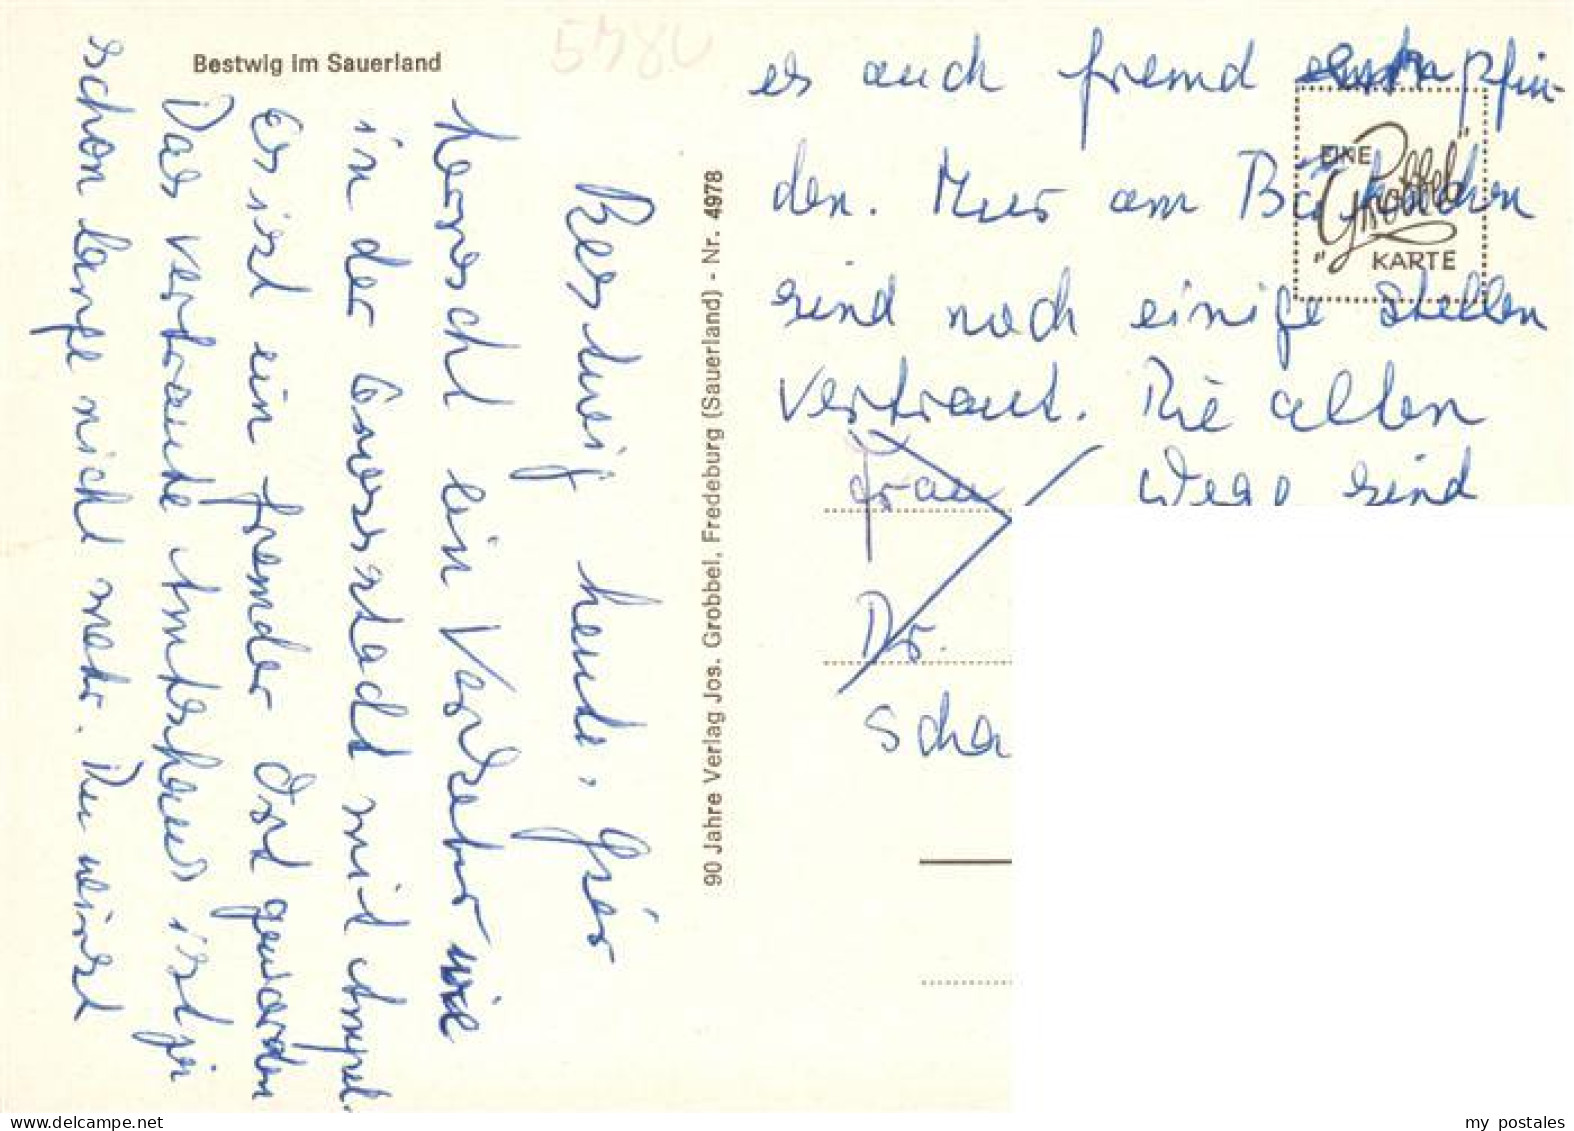 Bestwig im Sauerland
5780
Bestwig heute. Hier
herrscht ein Verkehr wie
in der Grossstadt mit Ampel.
Es ist ein fremder Ort geworden
Das vertraute Amtshaus ist ja
schon lange nicht mehr. Du wirst
90 Jahre Verlag Jos. Grobbel, Fredeburg (Sauerland) - Nr. 4978
es auch fremd empfin-
den. Nur am Bähnchen
sind noch einige Stellen
vertraut. Die alten
Wege sind
EINE
"Grobbel"
KARTE
Frau
Dr.
Scha
delcampe.net
my_postales